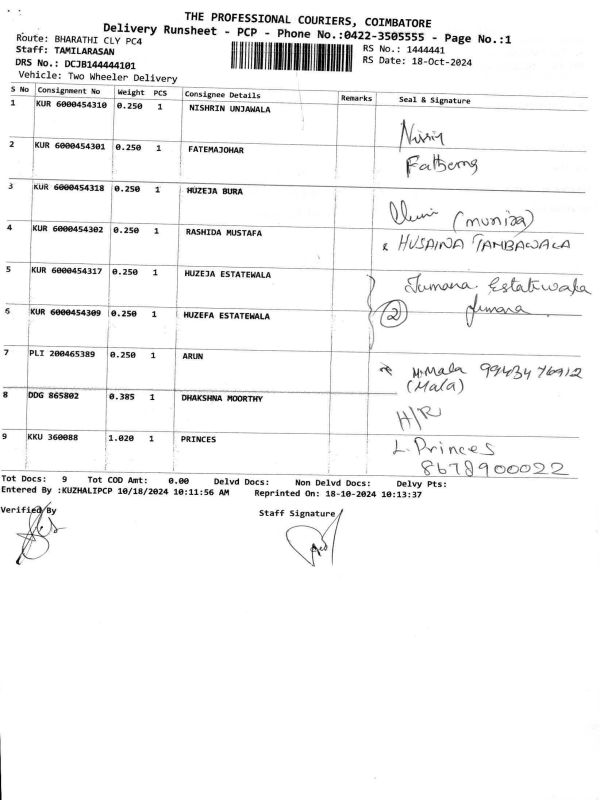 THE PROFESSIONAL COURIERS, COIMBATORE
Delivery Runsheet - PCP - Phone No.:0422-3505555 - Page No.:1
Route: BHARATHI CLY PC4
RS No.: 1444441
Staff: TAMILARASAN
RS Date: 18-Oct-2024
DRS No.: DCJB144444101
Vehicle: Two Wheeler Delivery
S No Consignment No Weight PCS Consignee Details Remarks Seal & Signature
1 KUR 6000454310 0.250 1 NISHRIN UNJAWALA
2 KUR 6000454301 0.250 1 FATEMAJOHAR
3 KUR 6000454318 0.250 1 HUZEJA BURA (muniza)
4 KUR 6000454302 0.250 1 RASHIDA MUSTAFA & HUSAINA TAMBAWALA
5 KUR 6000454317 0.250 1 HUZEJA ESTATEWALA Jumana. Estatwala
6 KUR 6000454309 0.250 1 HUZEFA ESTATEWALA 2 Jumana
7 PLI 200465389 0.250 1 ARUN Mala
(Mala)
8 DDG 865802 0.385 1 DHAKSHNA MOORTHY H/R
9 KKU 360088 1.020 1 PRINCES L. Princes
8678900022
Tot Docs: 9 Tot COD Amt: 0.00 Delvd Docs: Non Delvd Docs: Delvy Pts:
Entered By :KUZHALIPCP 10/18/2024 10:11:56 AM Reprinted On: 18-10-2024 10:13:37
Verified By Staff Signature